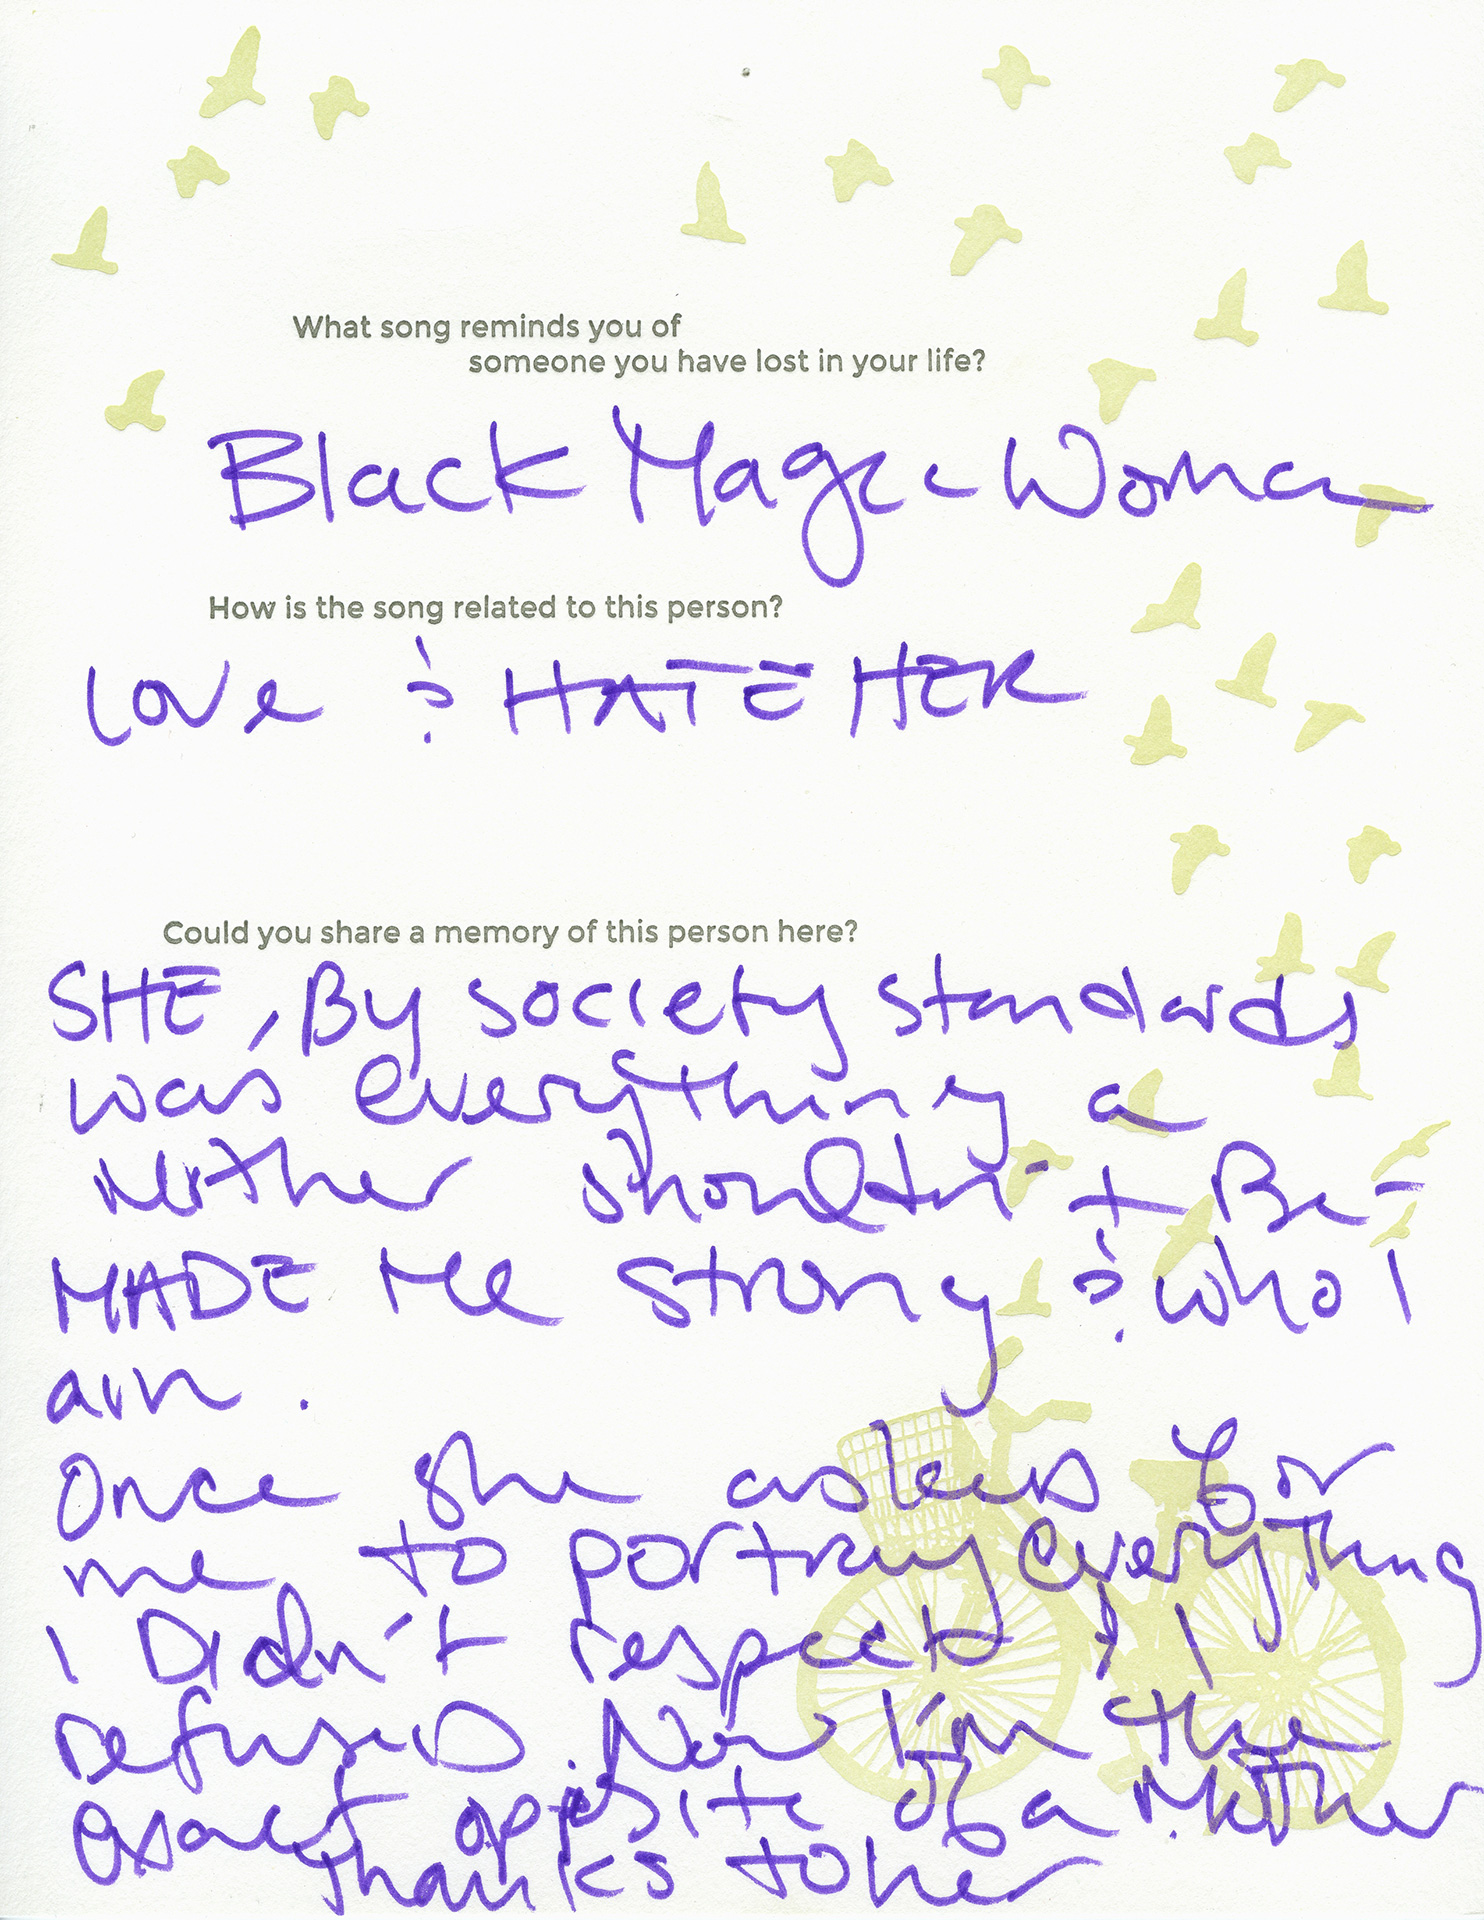 What song reminds you of
someone you have lost in your life?
Black Magic Woman
How is the song related to this person?
Love & HATE HER
Could you share a memory of this person here?
SHE, By society standards
was everything a
Mother shouldn't Be-
MADE Me strong & who I
am.
Once she asked for
me to portray everything
I Didn't respect & I
refused. Now I'm the
exact opposite of a Mother
thanks to her